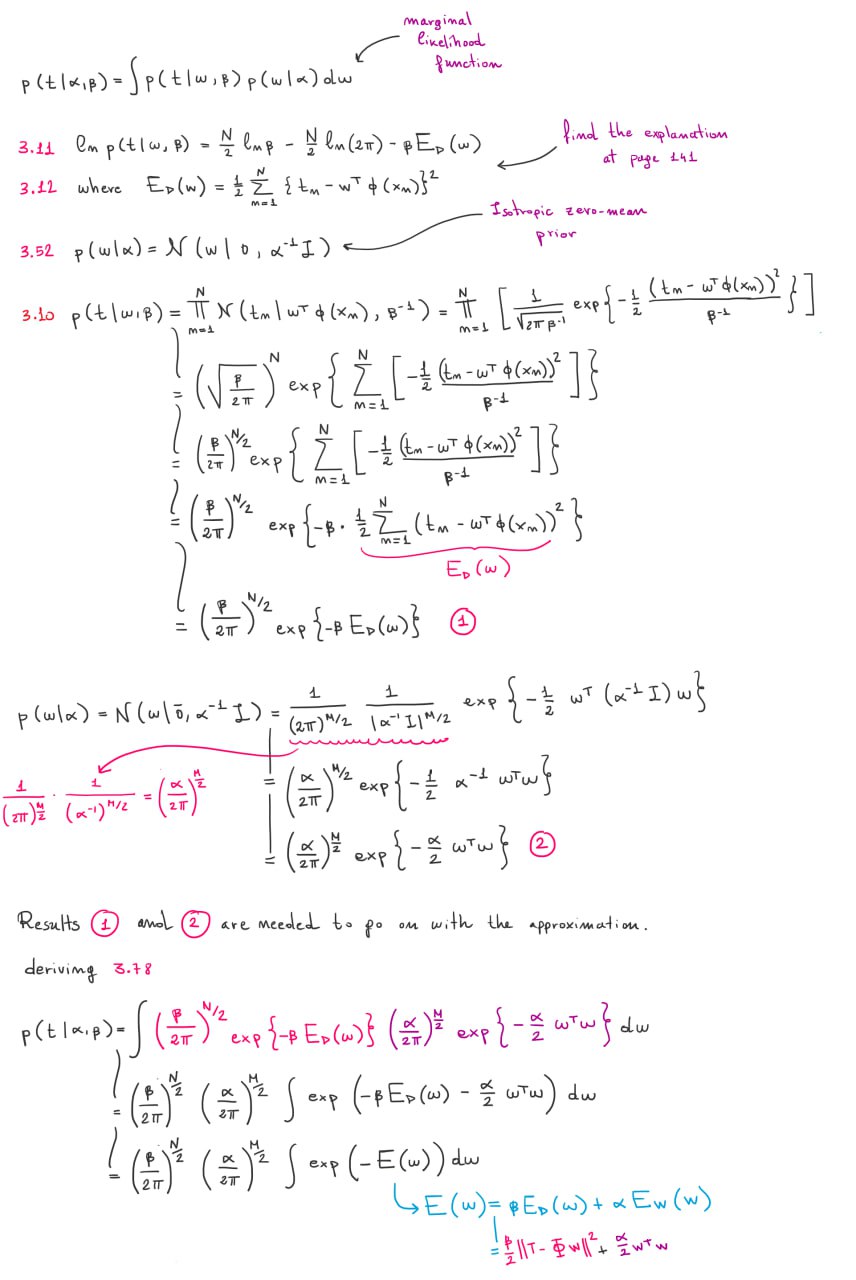 marginal
likelihood
function
p(t|α,β) = ∫ p(t|w,β) p(w|α) dw
3.11 ln p(t|w,β) = N/2 ln β - N/2 ln(2π) - β E_D(w)
find the explanation
at page 141
3.12 where E_D(w) = 1/2 Σ_{n=1}^{N} {t_n - w^T φ(x_n)}^2
Isotropic zero-mean
prior
3.52 p(w|α) = N(w|0, α^{-1} I)
3.10 p(t|w,β) = ∏_{n=1}^{N} N(t_n|w^T φ(x_n), β^{-1}) = ∏_{n=1}^{N} [1/√(2π β^{-1}) exp{-1/2 (t_n - w^T φ(x_n))^2 / β^{-1}}]
= (√(β/2π))^N exp{Σ_{n=1}^{N} [-1/2 (t_n - w^T φ(x_n))^2 / β^{-1}]}
= (β/2π)^{N/2} exp{Σ_{n=1}^{N} [-1/2 (t_n - w^T φ(x_n))^2 / β^{-1}]}
= (β/2π)^{N/2} exp{-β · 1/2 Σ_{n=1}^{N} (t_n - w^T φ(x_n))^2}
E_D(w)
= (β/2π)^{N/2} exp{-β E_D(w)} ①
p(w|α) = N(w|0̄, α^{-1} I) = 1/(2π)^{M/2} 1/|α^{-1} I|^{M/2} exp{-1/2 w^T (α^{-1} I) w}
1/(2π)^{M/2} · 1/(α^{-1})^{M/2} = (α/2π)^{M/2}
= (α/2π)^{M/2} exp{-1/2 α^{-1} w^T w}
= (α/2π)^{M/2} exp{-α/2 w^T w} ②
Results ① and ② are needed to go on with the approximation.
deriving 3.78
p(t|α,β) = ∫ (β/2π)^{N/2} exp{-β E_D(w)} (α/2π)^{M/2} exp{-α/2 w^T w} dw
= (β/2π)^{N/2} (α/2π)^{M/2} ∫ exp(-β E_D(w) - α/2 w^T w) dw
= (β/2π)^{N/2} (α/2π)^{M/2} ∫ exp(-E(w)) dw
E(w) = β E_D(w) + α E_W(w)
= β/2 ||T - Φw||^2 + α/2 w^T w